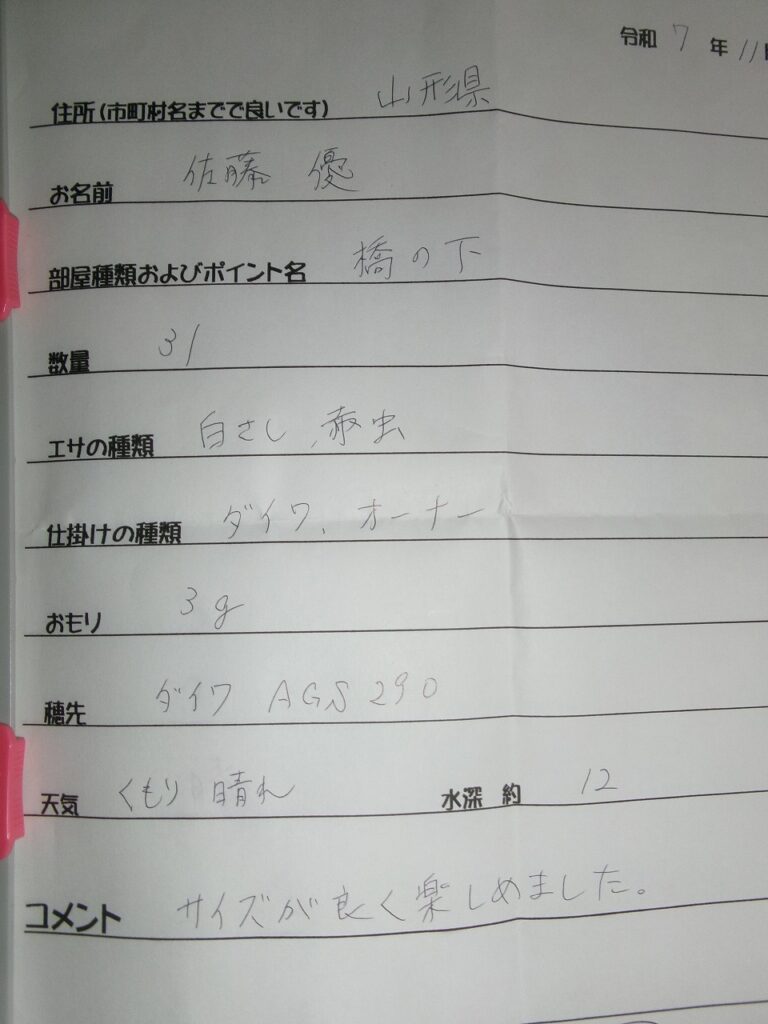 令和 7 年 11
住所(市町村名までで良いです) 山形県
お名前 佐藤 優
部屋種類およびポイント名 橋の下
数量 31
エサの種類 白さし、赤虫
仕掛けの種類 ダイワ、オーナー
おもり 3g
穂先 ダイワ AGS 290
天気 くもり 晴れ 水深 約 12
コメント サイズが良く楽しめました。